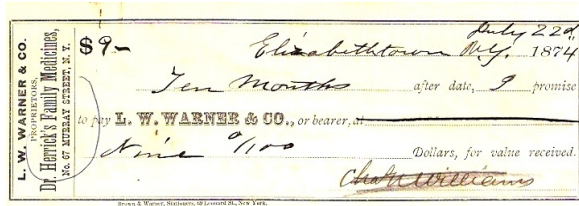 L. W. WARNER & CO.
PROPRIETORS,
Dr. Herrick's Family Medicines,
No. 67 MURRAY STREET, N. Y.
$9–
July 22d
Elizabethtown N.Y. 1874
Ten Months after date, I promise
to pay L. W. WARNER & CO., or bearer, at
Nine 0/100 Dollars, for value received.
Chas N Williams
Brown & Warner, Stationers, 69 Leonard St., New York.